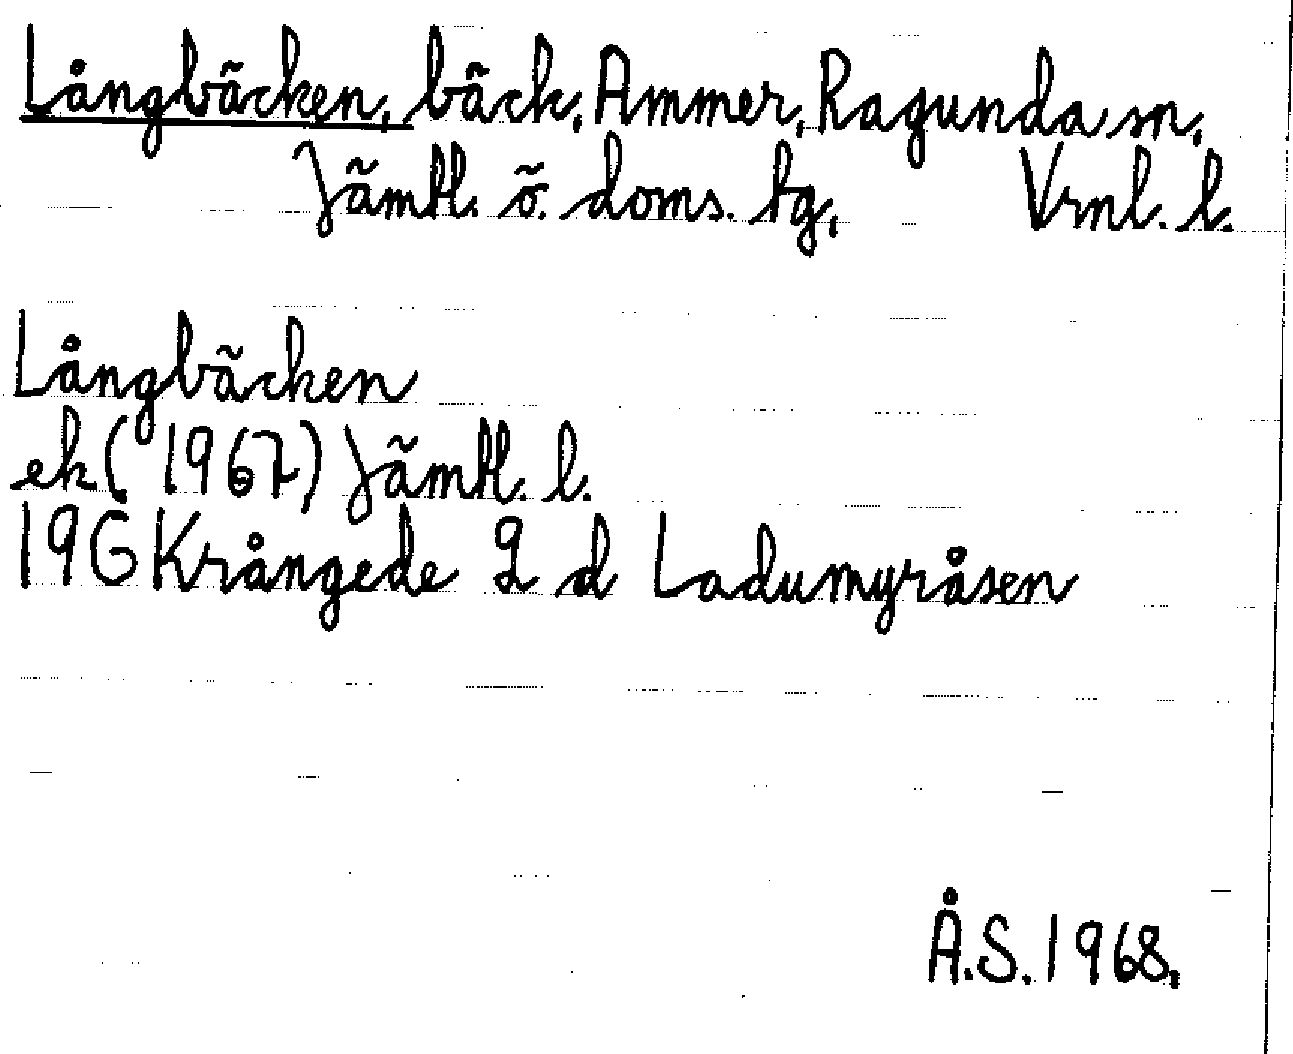 Långbäcken, bäck, Ammer, Ragunda sn,
Jämtl. ö. doms. tg, Vrnl. l.
Långbäcken
ek (1967) Jämtl. l.
19G Krångede 2 d Ladumyråsen
Å.S. 1968.